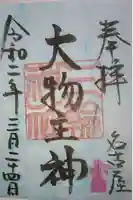 奉拝
名古屋
大物主神
令和二年二月二十四日